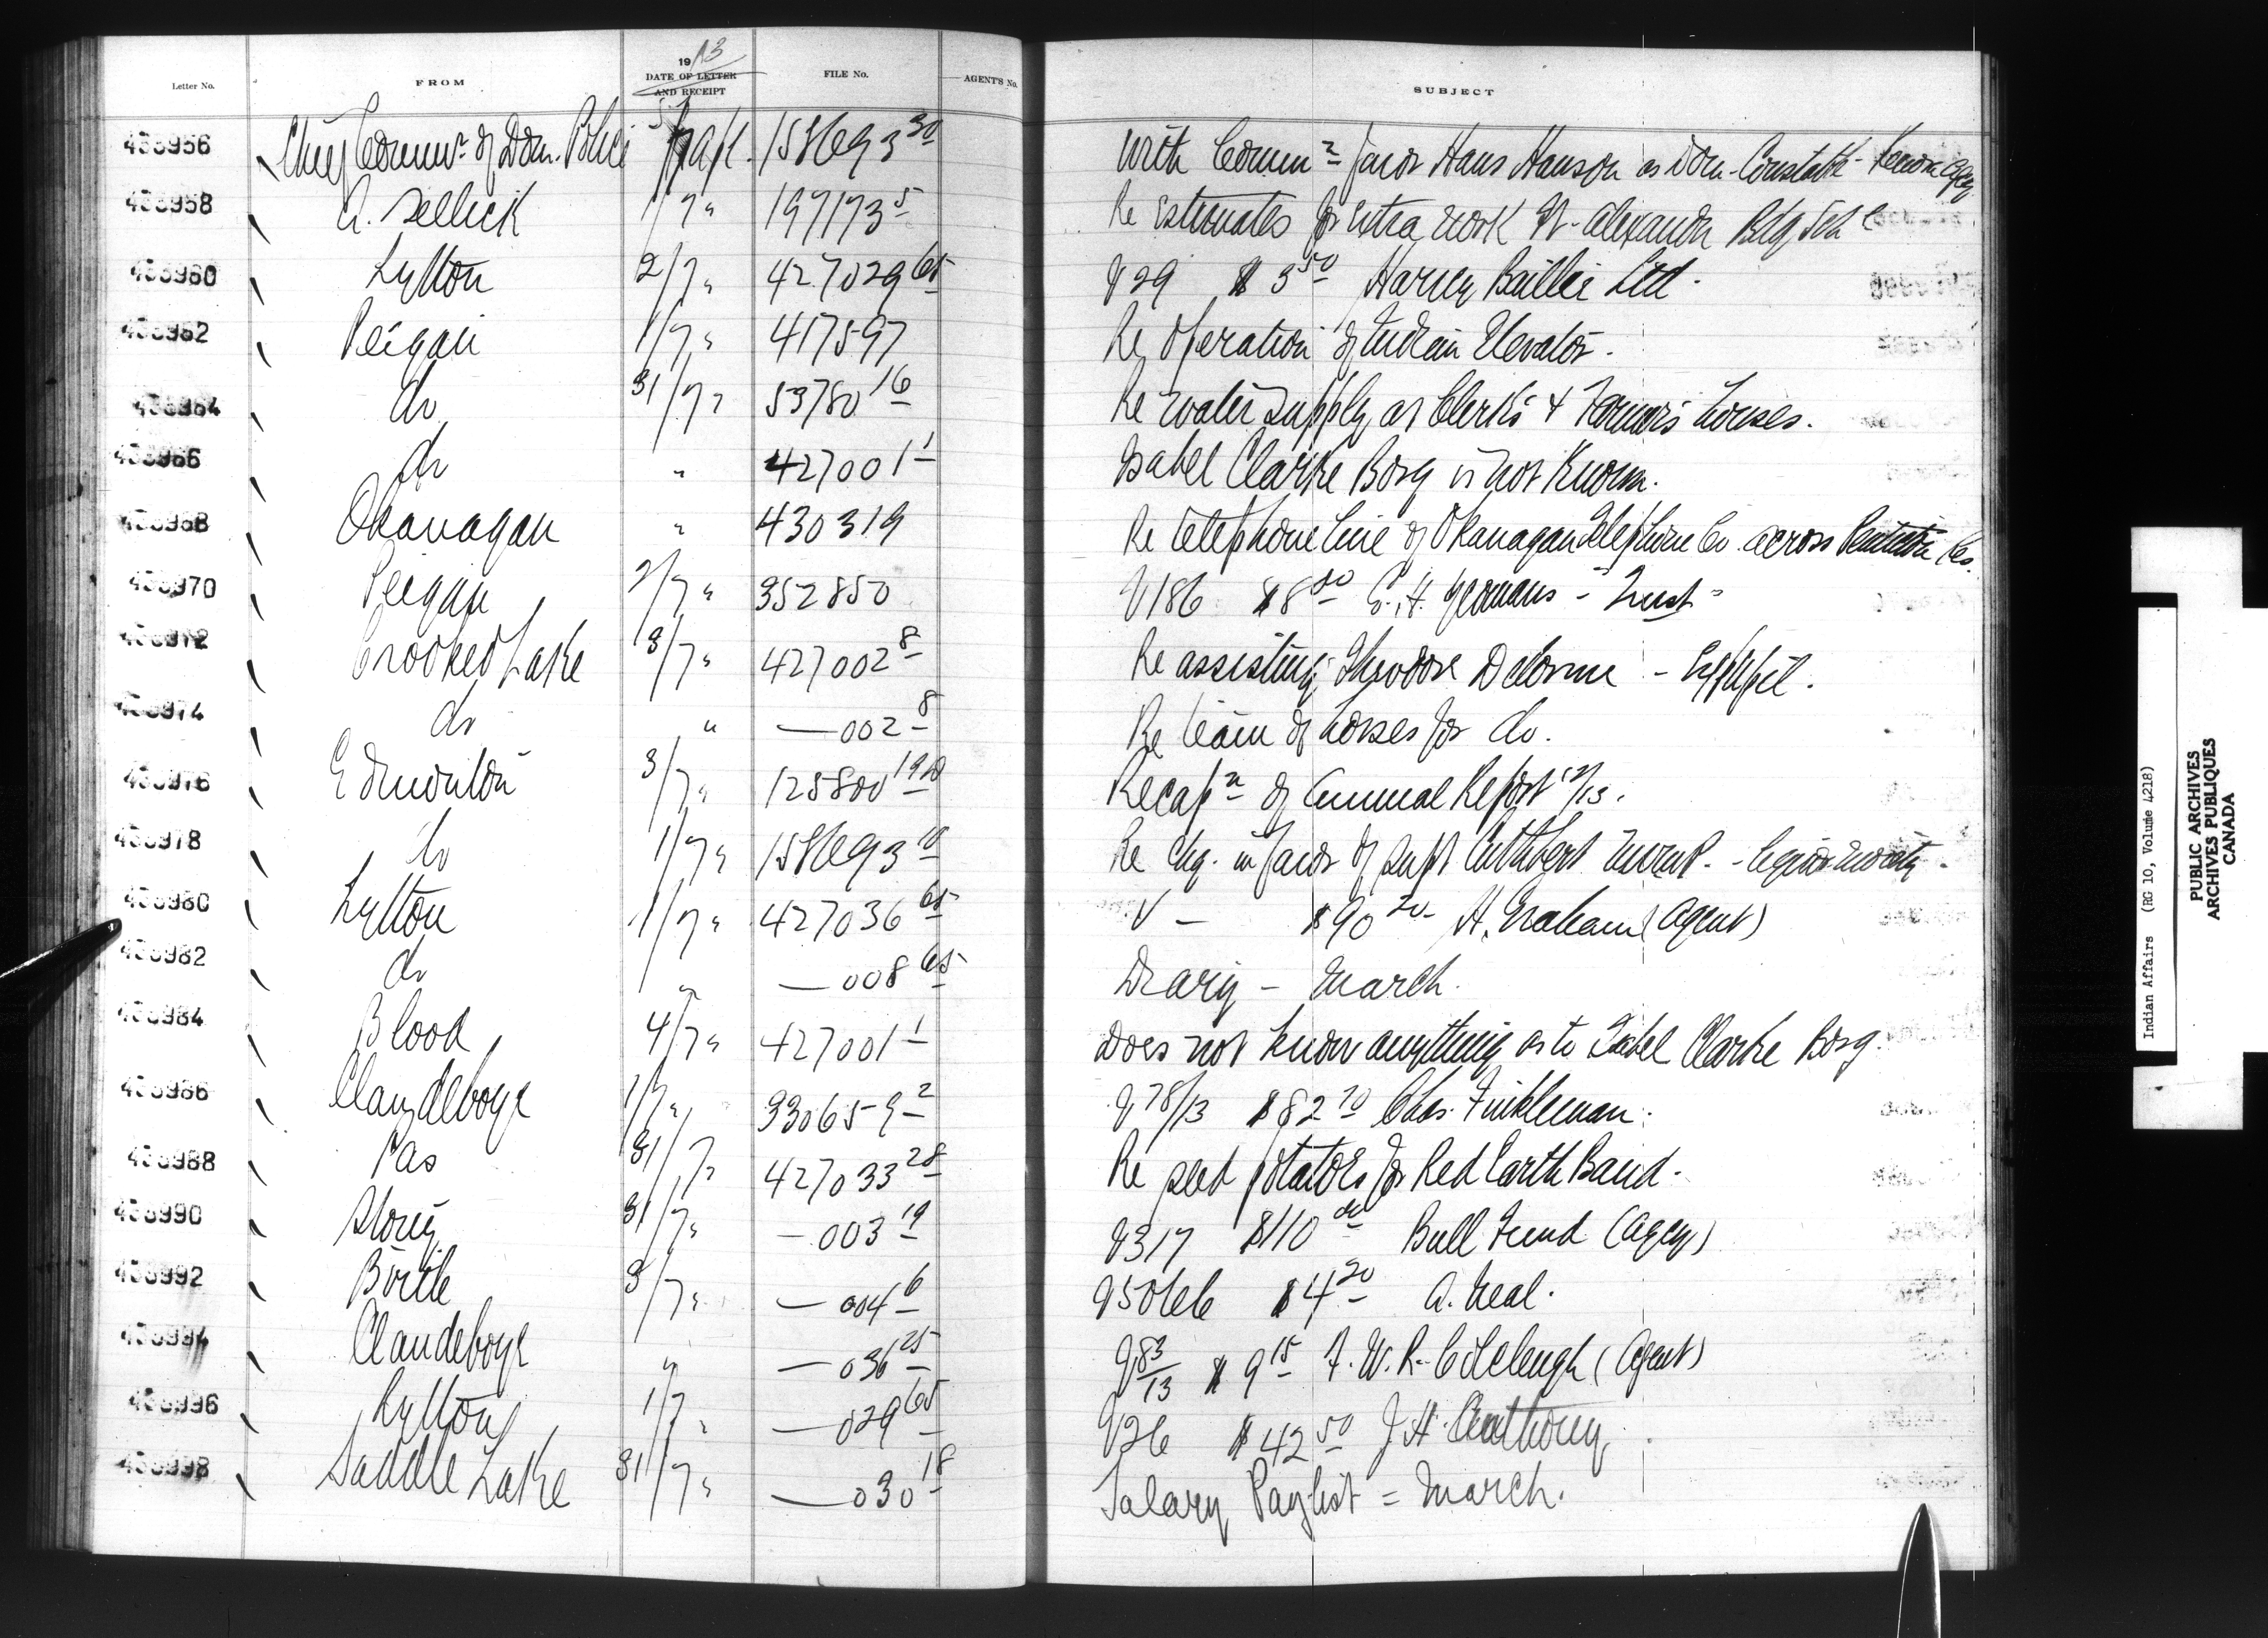 Letter No. FROM 1913 DATE OF LETTER AND RECEIPT FILE No. AGENT'S No. SUBJECT
438956 Chief Commr. of Dom. Police 158693 30 With Commn in favor Hans Hanson as Dom. Constable - Kenora Agcy
438958 A. Sellick 1/7 " 197173 5 Re Estimates for extra work St. Alexander Bdg Sch l
438960 Lytton 2/7 " 427029 65 V 29 $3 50 Harvey Bailie Ltd.
438962 Peigan 1/7 " 417597 Re Operation of Indian Elevator.
438964 do 31/7 " 53780 16 Re water supply at Clerk's & Farmer's houses.
438966 do " 427001 1 Isabel Clarke Borg is not known.
438968 Okanagan " 430319 Re telephone line of Okanagan Telephone Co. across Penticton Res.
438970 Peigan 2/7 " 352850 V 186 E. H. Yeomans - Trust -
438972 Crooked Lake 3/7 " 427002 8 Re assisting Theodore Delorme - Ex pupil.
438974 do " — 002 8 Re team of horses for do.
438976 Edmonton 3/7 " 125800 Recapn of Annual Report 12/13.
438978 do 1/7 " 158693 Re Chq. in favor of Supt Cuthbert
438980 Lytton 1/7 " 427036 65 V — $90 20 H. Graham (Agent)
438982 do " — 008 65 Diary - March.
438984 Blood 4/7 " 427001 1 Does not know anything as to Isabel Clarke Borg.
438986 Clandeboye 1/7 " 330659 2 V 78/13 $82 70 Chas. Finkleman.
438988 Pas 31/7 " 427033 28 Re seed potatoes for Red Earth Band.
438990 Stony 31/7 " — 003 19 V 317 $110 00 Bull Fund (Agcy)
438992 Birtle 3/7 " — 004 6 $4 20 A. Neal.
438994 Clandeboye " — 036 25 V 83/13 $9 15 F. W. R. Colcleugh (Agent)
438996 Lytton 1/7 " — 029 65 V 26 $42 50 J H Anthony
438998 Saddle Lake 31/7 " — 030 18 Salary Paylist = March.
Indian Affairs (RG 10, Volume 4218)
PUBLIC ARCHIVES
ARCHIVES PUBLIQUES
CANADA